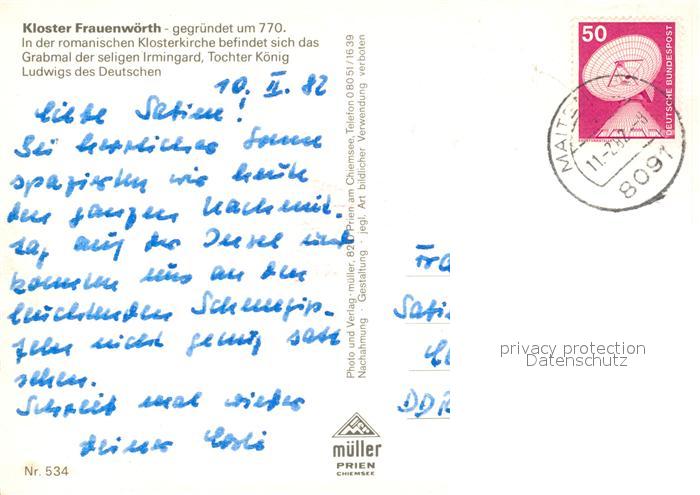 Kloster Frauenwörth - gegründet um 770.
In der romanischen Klosterkirche befindet sich das
Grabmal der seligen Irmingard, Tochter König
Ludwigs des Deutschen
10. II. 82
Liebe Sabine!
Bei herrlicher Sonne
spazierten wir heute
den ganzen Nachmit-
tag auf der Insel und
konnten uns an den
leuchtenden Schneegip-
feln nicht genug satt
sehen.
Schreib mal wieder
deiner
Nr. 534
Photo und Verlag · müller, 821 Prien am Chiemsee, Telefon 08051/1639
Nachahmung · Gestaltung · jegl. Art bildlicher Verwendung verboten
müller
PRIEN
CHIEMSEE
50
DEUTSCHE BUNDESPOST
11.-2.82
8091
Sabin
DDR
privacy protection
Datenschutz